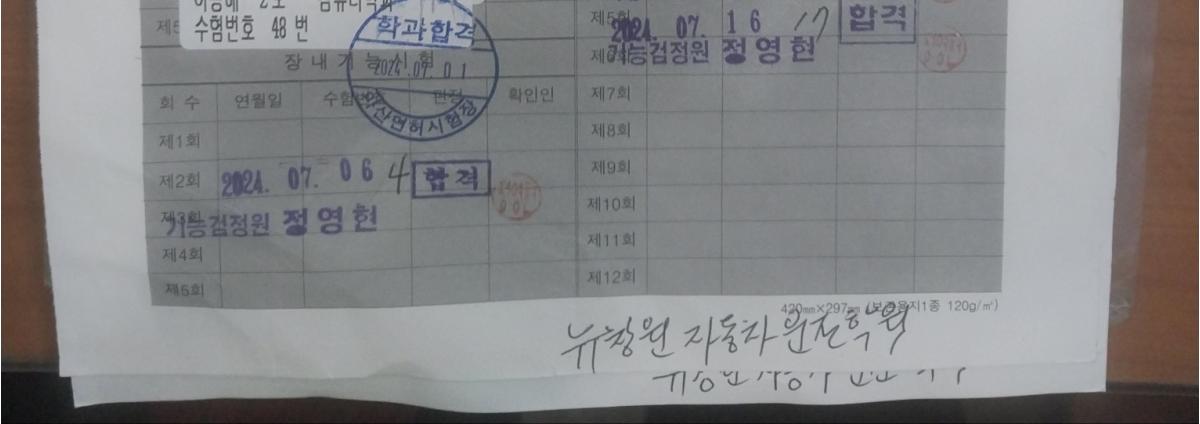 수험번호 48 번
학과합격
2024.07.01
마산면허시험장
장내기능시험
회 수 연월일 수험번호 판정 확인인
제1회
제2회 2024. 07. 06 4 합격
제3회
기능검정원 정영현
제4회
제5회
제5회 2024. 07. 16 17 합격
제6회
기능검정원 정영현
제7회
제8회
제9회
제10회
제11회
제12회
420㎜×297㎜ (보존용지1종 120g/㎡)
뉴창원 자동차운전학원